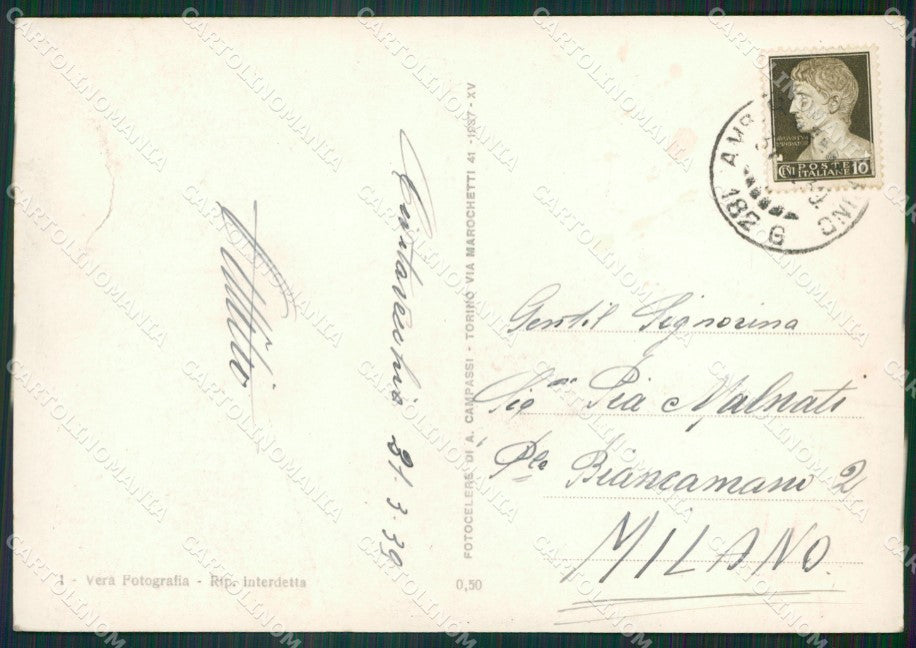 Civitavecchia 31-3-39
FOTOCELERE DI A. CAMPASSI - TORINO VIA MAROCHETTI 41 - 1937 - XV
1 - Vera Fotografia - Rip. interdetta
0,50
POSTE
CENT ITALIANE 10
AMB
182 G
Gentil Signorina
Sig.na Pia Malnati
P.le Biancamano 2
MILANO
CARTOLINOMANIA